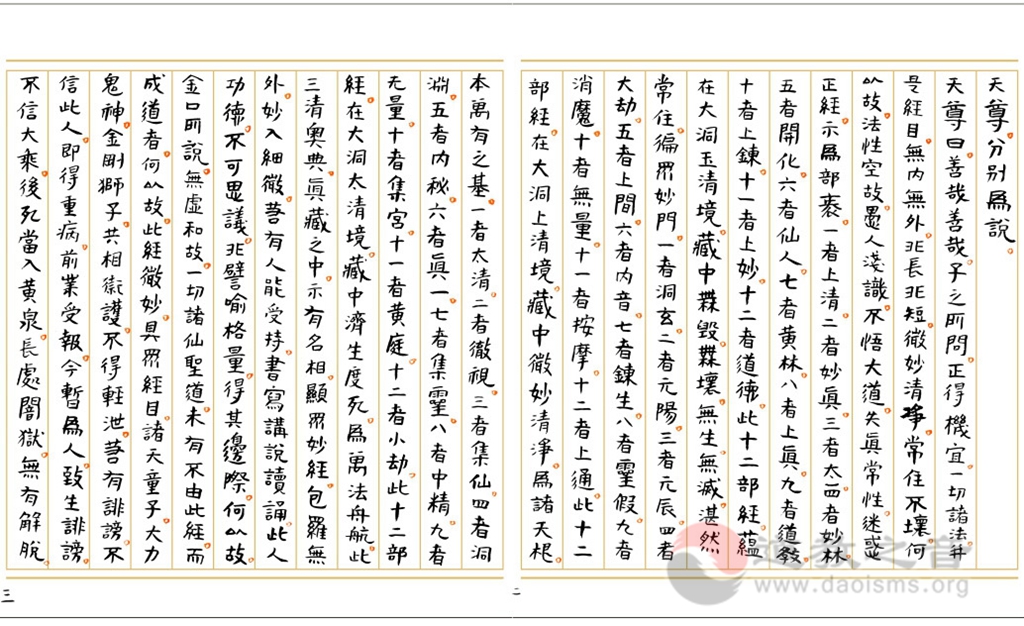 天尊。分別爲說。
天尊曰善哉善哉。子之所問。正得機宜。一切諸法并
是經目。無內無外。非長非短。微妙清淨。常住不壞。何
以故。法性空故。愚人淺識。不悟大道。失眞常性。迷惑
正經。示爲部袠。一者上清。二者妙眞。三者太一。四者妙林。
五者開化。六者仙人。七者黃林。八者上眞。九者道教。
十者上鍊。十一者上妙。十二者道德。此十二部經。蘊
在大洞玉清境。藏中無毀無壞。無生無滅。湛然
常住。徧界妙門。一者洞玄。二者元陽。三者元辰。四者
大劫。五者上開。六者內音。七者鍊生。八者靈假。九者
消魔。十者無量。十一者按摩。十二者上通。此十二
部經。在大洞上清境。藏中微妙清淨。爲諸天根。
二
本萬有之基。一者太清。二者徹視。三者集仙。四者洞
淵。五者內秘。六者眞一。七者集靈。八者中精。九者
无量。十者集宮。十一者黃庭。十二者小劫。此十二部
經。在大洞太清境。藏中濟生度死。爲萬法舟航。此
三清奧典。眞藏之中。示有名相。顯界妙經。包羅無
外。妙入細微。若有人能受持書寫。講說讀誦。此人
功德。不可思議。非譬喻格量。得其邊際。何以故。
金口所說。無虛和故。一切諸仙聖道。未有不由此經而
成道者。何以故。此經微妙。具界經目。諸天童子。大力
鬼神。金剛獅子。共相衛護。不得輕泄。若有誹謗。不
信此人即得重病。前業受報。今暫爲人。致生誹謗。
不信大乘。後死當入黃泉。長處闇獄。無有解脫。
三
道教之音
www.daoisms.org